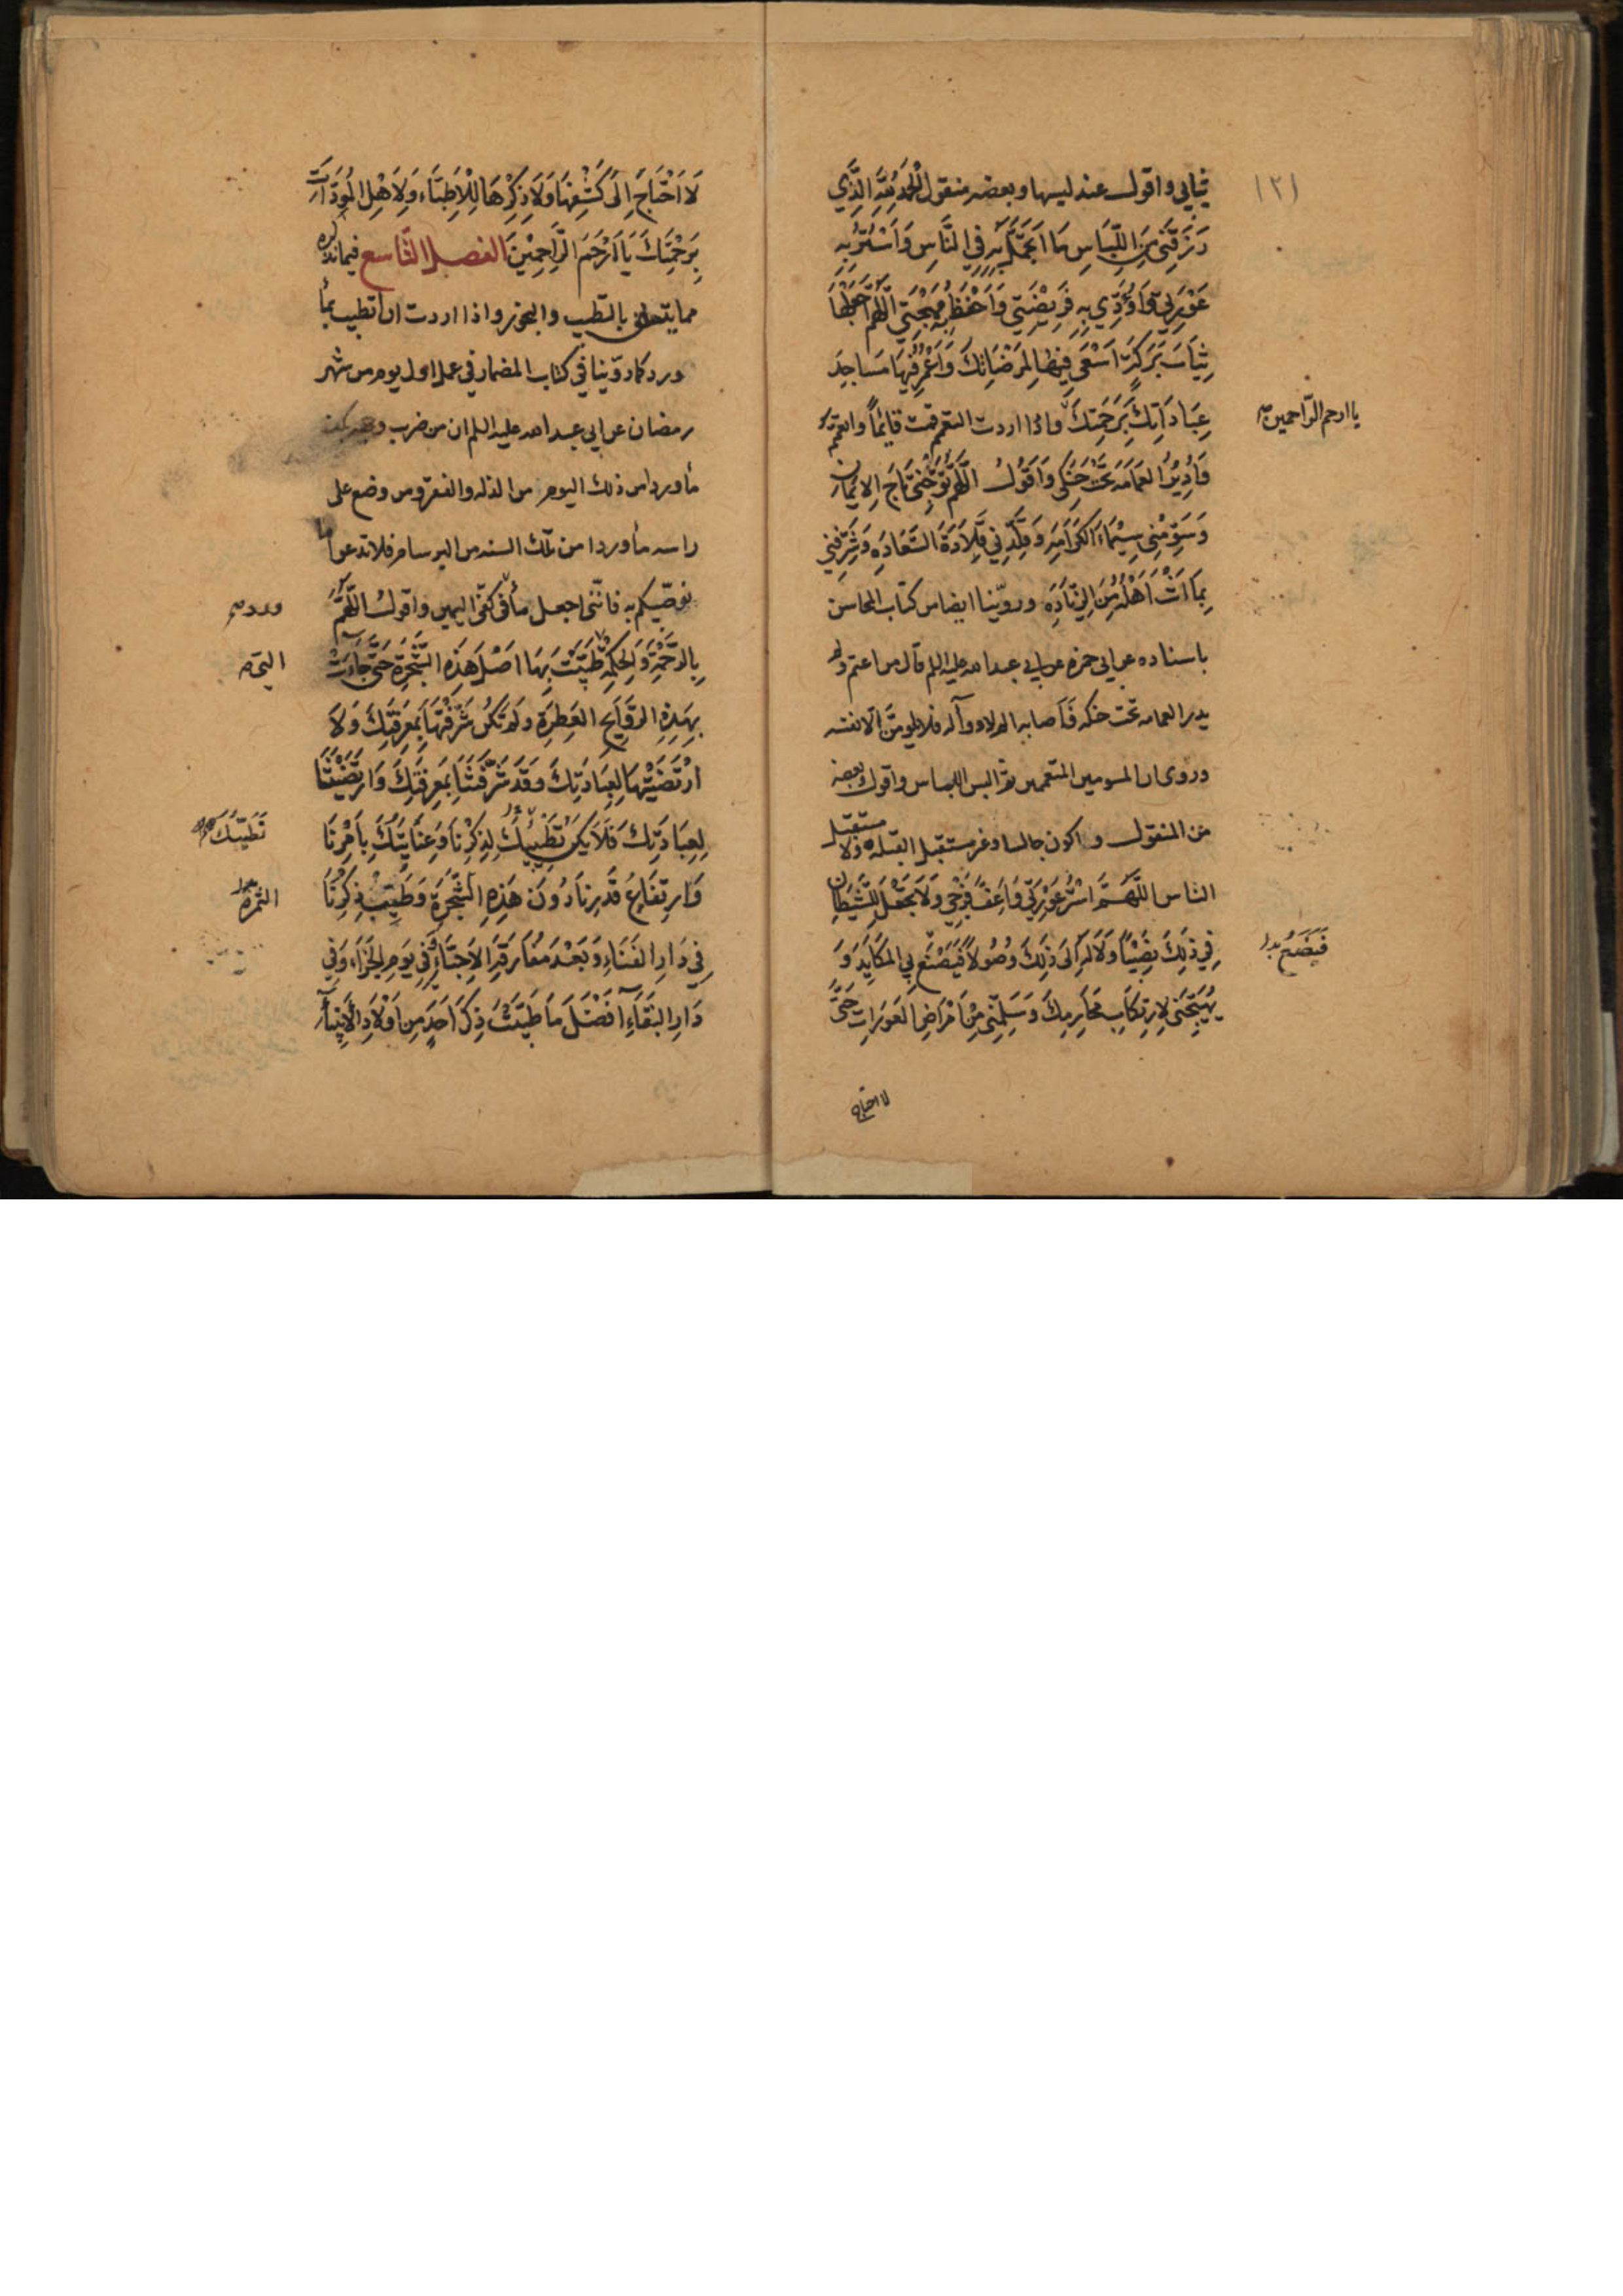 ثيابي واقول عند لبسها وبعضه منقول اَلْحَمْدُ لِلّٰهِ الَّذِي
رَزَقَنِي مِنَ اللِّبَاسِ مَا اَتَجَمَّلُ بِهِ فِي النَّاسِ وَاَسْتُرُ بِهِ
عَوْرَتِي وَاُؤَدِّي بِهِ فَرِيْضَتِي وَاَحْفَظُ بِهِ مُهْجَتِي اَللّٰهُمَّ اجْعَلْهَا
ثِيَابَ بَرَكَةٍ اَسْعَى فِيْهَا لِمَرْضَاتِكَ وَاَعْمُرُ فِيْهَا مَسَاجِدَ
عِبَادَاتِكَ بِرَحْمَتِكَ واذا اردت التعمم قمت قائماً واتعمم
يا ارحم الرّاحمين
وَاُدِيْرُ العَمَامَة تَحْتَ حَنَكِي وَاَقُولُ اَللّٰهُمَّ تَوِّجْنِي تَاجَ الاِيْمَانِ
وَسَوِّمْنِي سِيْمَاءَ الكَرَامَةِ وَقَلِّدْنِي قِلَادَةَ السَّعَادَةِ وَشَرِّفْنِي
بِمَا اَنْتَ اَهْلُهُ مِنَ الزِّيَادَةِ وروّينا ايضا من كتاب المحاسن
باسناده عن ابي حمزه عن ابي عبد الله عليه السلم قال من اعتم ولم
يدير العمامه تحت حنكه فَاَصابه الم لا دوآ له فلا يلومنّ الّا نفسه
وروى ان المسومين المتعممين ثم البس اللباس واقول بعضه
من المنقول واكون جالسا وغير مستقبل القبله ولا مستقبل
الناس اَللّٰهُمَّ اسْتُرْ عَوْرَتِي وَاَعِفَّ فَرْجِي وَلَا تَجْعَلْ لِلشَّيْطَانِ
فِي ذٰلِكَ نَصِيْباً وَلَا لَهُ اِلَى ذٰلِكَ وُصُولاً فَيَصْنَعَ لِي المَكَايِدَ وَ
فَيَضَعُ
يُهَيِّجَنِي لِارْتِكَابِ مَحَارِمِكَ وَسَلِّمْنِي مِنْ اَمْرَاضِ العَوْرَاتِ حَتَّى
لا احتاج
لَا اَحْتَاجَ اِلَى كَشْفِهَا وَلَا ذِكْرِهَا لِلْاَطِبَّاءِ وَلَا لِاَهْلِ المَوَدَّاتِ
بِرَحْمَتِكَ يَا اَرْحَمَ الرَّاحِمِيْنَ الفصل التّاسع فيما نذكره
مما يتعلق بالتطيب والبخور واذا اردت ان اتطيب بمأ
ورد كما روّينا في كتاب المضمار في عمل اول يوم من شهر
رمضان عن ابي عبد الله عليه السلم ان من ضرب وجهه بكف
مأ ورد امن ذلك اليوم من الذله والفقر ومن وضع على
راسه مأ ورد امن تلك السنه من البرسام فلا تدعوا ما
نوصّيكم به فانّني اجعل مأ في كفّي اليمين واقول اَللّٰهُمَّ
ورد
بِالرَّحْمَةِ وَالحِكْمَةِ طَيَّبْتَ بِهَا اَصْلَ هَذِهِ الشَّجَرَةِ حَتَّى جَاءَتْ
التي
بِهٰذِهِ الرَّوَايِحِ العَطِرَةِ وَلَمْ تَكُنْ شَرَّفْتَهَا بِمَعْرِفَتِكَ وَلَا
ارْتَضَيْتَهَا لِعِبَادَتِكَ وَقَدْ شَرَّفْتَنَا بِمَعْرِفَتِكَ وَارْتَضَيْتَنَا
لِعِبَادَتِكَ فَلَا يَكُنْ تَطْيِيْبُكَ لِذِكْرِنَا وَعِنَايَتُكَ بِاَمْرِنَا
تَطَيُّبَكَ
وَارْتِفَاعُ قَدْرِنَا دُونَ هَذِهِ الشَّجَرَةِ وَطَيِّبْ ذِكْرَنَا
الثمره
فِي دَارِ الفَنَاءِ وَبَعْدَ مُفَارَقَةِ الاَحِبَّاءِ وَفِي يَوْمِ الجَزَاءِ وَفِي
دَارِ البَقَاءِ اَفْضَلَ مَا طَيَّبْتَ ذِكْرَ اَحَدٍ مِنْ اَوْلَادِ الاَنْبِيَاءِ